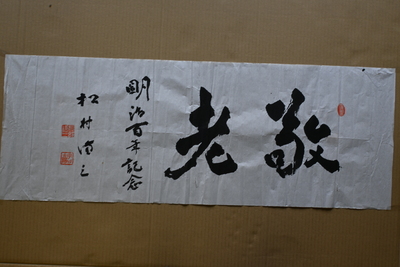 敬老
明治百年記念
松村